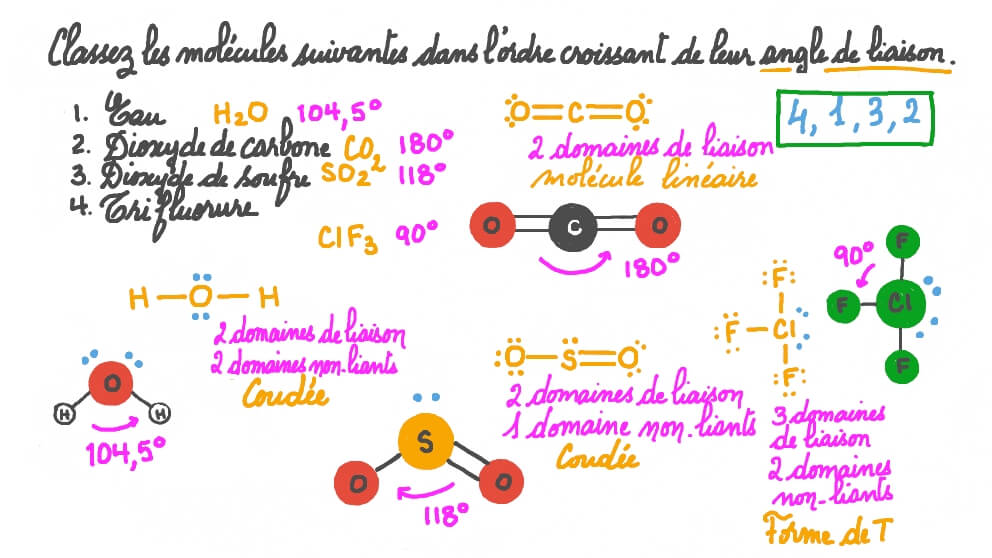 Classez les molécules suivantes dans l'ordre croissant de leur angle de liaison.
1. Eau H₂O 104,5°
2. Dioxyde de carbone CO₂ 180°
3. Dioxyde de soufre SO₂ 118°
4. Trifluorure
ClF₃ 90°
O=C=O
2 domaines de liaison
molécule linéaire
4, 1, 3, 2
O C O
180°
H-O-H
2 domaines de liaison
2 domaines non-liants
Coudée
O
H H
104,5°
O-S=O
2 domaines de liaison
1 domaine non-liants
Coudée
S
O O
118°
F
F-Cl
F
90°
F
F Cl
F
3 domaines
de liaison
2 domaines
non-liants
Forme de T